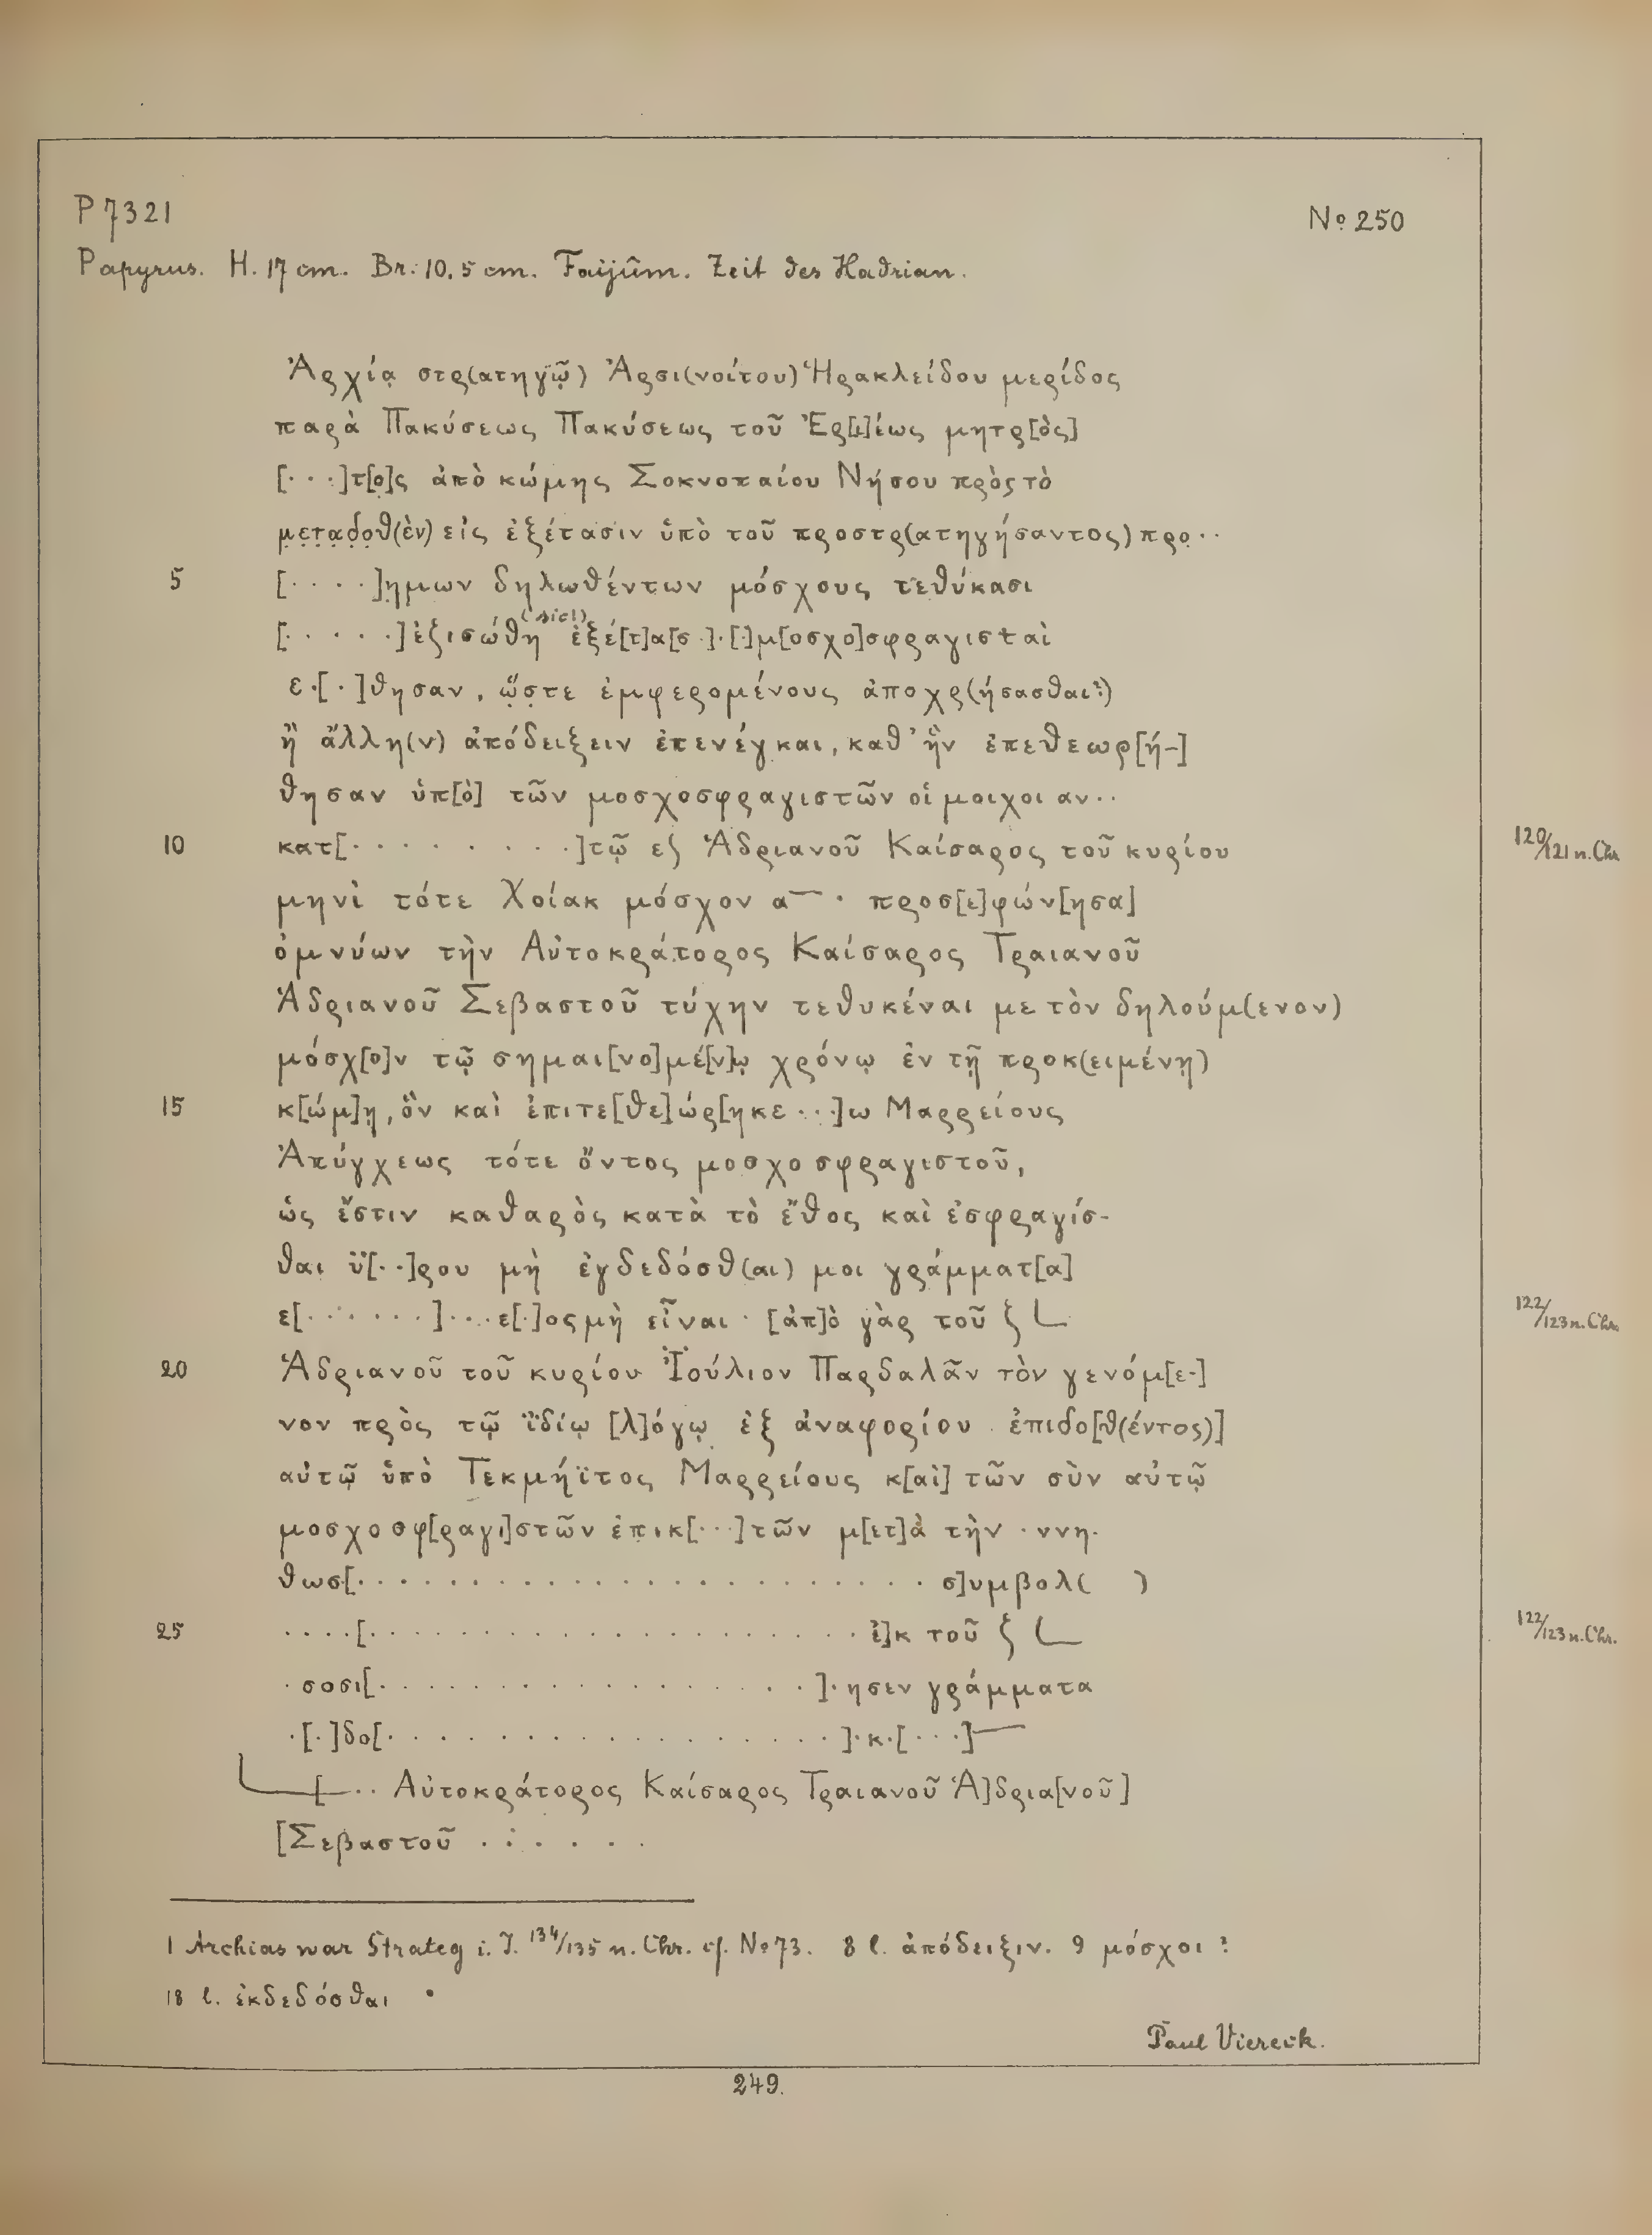 P 7321
Nº 250
Papyrus. H. 17 cm. Br. 10,5 cm. Faijûm. Zeit des Hadrian.
Ἀρχίᾳ στρ(ατηγῷ) Ἀρσι(νοίτου) Ἡρακλείδου μερίδος
παρὰ Πακύσεως Πακύσεως τοῦ Ἑρ[ι]έως μητρ[ὸς]
[· · ·]τ[ο]ς ἀπὸ κώμης Σοκνοπαίου Νήσου πρὸς τὸ
μεταδοθ(ὲν) εἰς ἐξέτασιν ὑπὸ τοῦ προστρ(ατηγήσαντος) προ··
5 [· · · ·]ημων δηλωθέντων μόσχους τεθύκασι
[· · · · ·]ἐξισώθη (sic!) ἐξέ[τ]α[σ·]·[·]μ[οσχο]σφραγισταὶ
ε·[·]θησαν, ὥστε ἐμφερομένους ἀποχρ(ήσασθαι?)
ἢ ἄλλη(ν) ἀπόδειξειν ἐπενέγκαι, καθ' ἣν ἐπεθεωρ[ή-]
θησαν ὑπ[ὸ] τῶν μοσχοσφραγιστῶν οἱ μοιχοι αν··
10 κατ[· · · · · · · · ·]τῷ εʃ Ἁδριανοῦ Καίσαρος τοῦ κυρίου 120/121 n. Chr
μηνὶ τότε Χοίακ μόσχον α— · προσ[ε]φών[ησα]
ὀμνύων τὴν Αὐτοκράτορος Καίσαρος Τραιανοῦ
Ἁδριανοῦ Σεβαστοῦ τύχην τεθυκέναι με τὸν δηλούμ(ενον)
μόσχ[ο]ν τῷ σημαι[νο]μέ[ν]ῳ χρόνῳ ἐν τῇ προκ(ειμένῃ)
15 κ[ώμ]ῃ, ὃν καὶ ἐπιτε[θε]ώρ[ηκε ···]ω Μαρρείους
Ἀπύγχεως τότε ὄντος μοσχοσφραγιστοῦ,
ὡς ἔστιν καθαρὸς κατὰ τὸ ἔθος καὶ ἐσφραγίσ-
θαι ὑ[··]ρου μὴ ἐγδεδόσθ(αι) μοι γράμματ[α]
ε[· · · · · · ·]····ε[·]ος μὴ εἶναι · [ἀπ]ὸ γὰρ τοῦ ζ L 122/123 n. Chr.
20 Ἁδριανοῦ τοῦ κυρίου Ἰούλιον Παρδαλᾶν τὸν γενόμ[ε-]
νον πρὸς τῷ ἰδίῳ [λ]όγῳ ἐξ ἀναφορίου ἐπιδο[θ(έντος)]
αὐτῷ ὑπὸ Τεκμήϊτος Μαρρείους κ[αὶ] τῶν σὺν αὐτῷ
μοσχοσφ[ραγι]στῶν ἐπικ[···]των μ[ετ]ὰ τὴν ·ννη·
θωσ[· · · · · · · · · · · · · · · · · · · · σ]υμβολ( )
25 ····[· · · · · · · · · · · · · · · · · · ἐ]κ τοῦ ζ L 122/123 n. Chr.
·σοσι[· · · · · · · · · · · · · · · · ]·ησεν γράμματα
·[·]δο[· · · · · · · · · · · · · · · · · ]·κ·[···]—
L[—·· Αὐτοκράτορος Καίσαρος Τραιανοῦ Ἁ]δρια[νοῦ]
[Σεβαστοῦ · · · · · ·
1 Archias war Strateg i. J. 134/135 n. Chr. cf. Nº 73. 8 l. ἀπόδειξιν. 9 μόσχοι?
18 l. ἐκδεδόσθαι
Paul Viereck.
249.